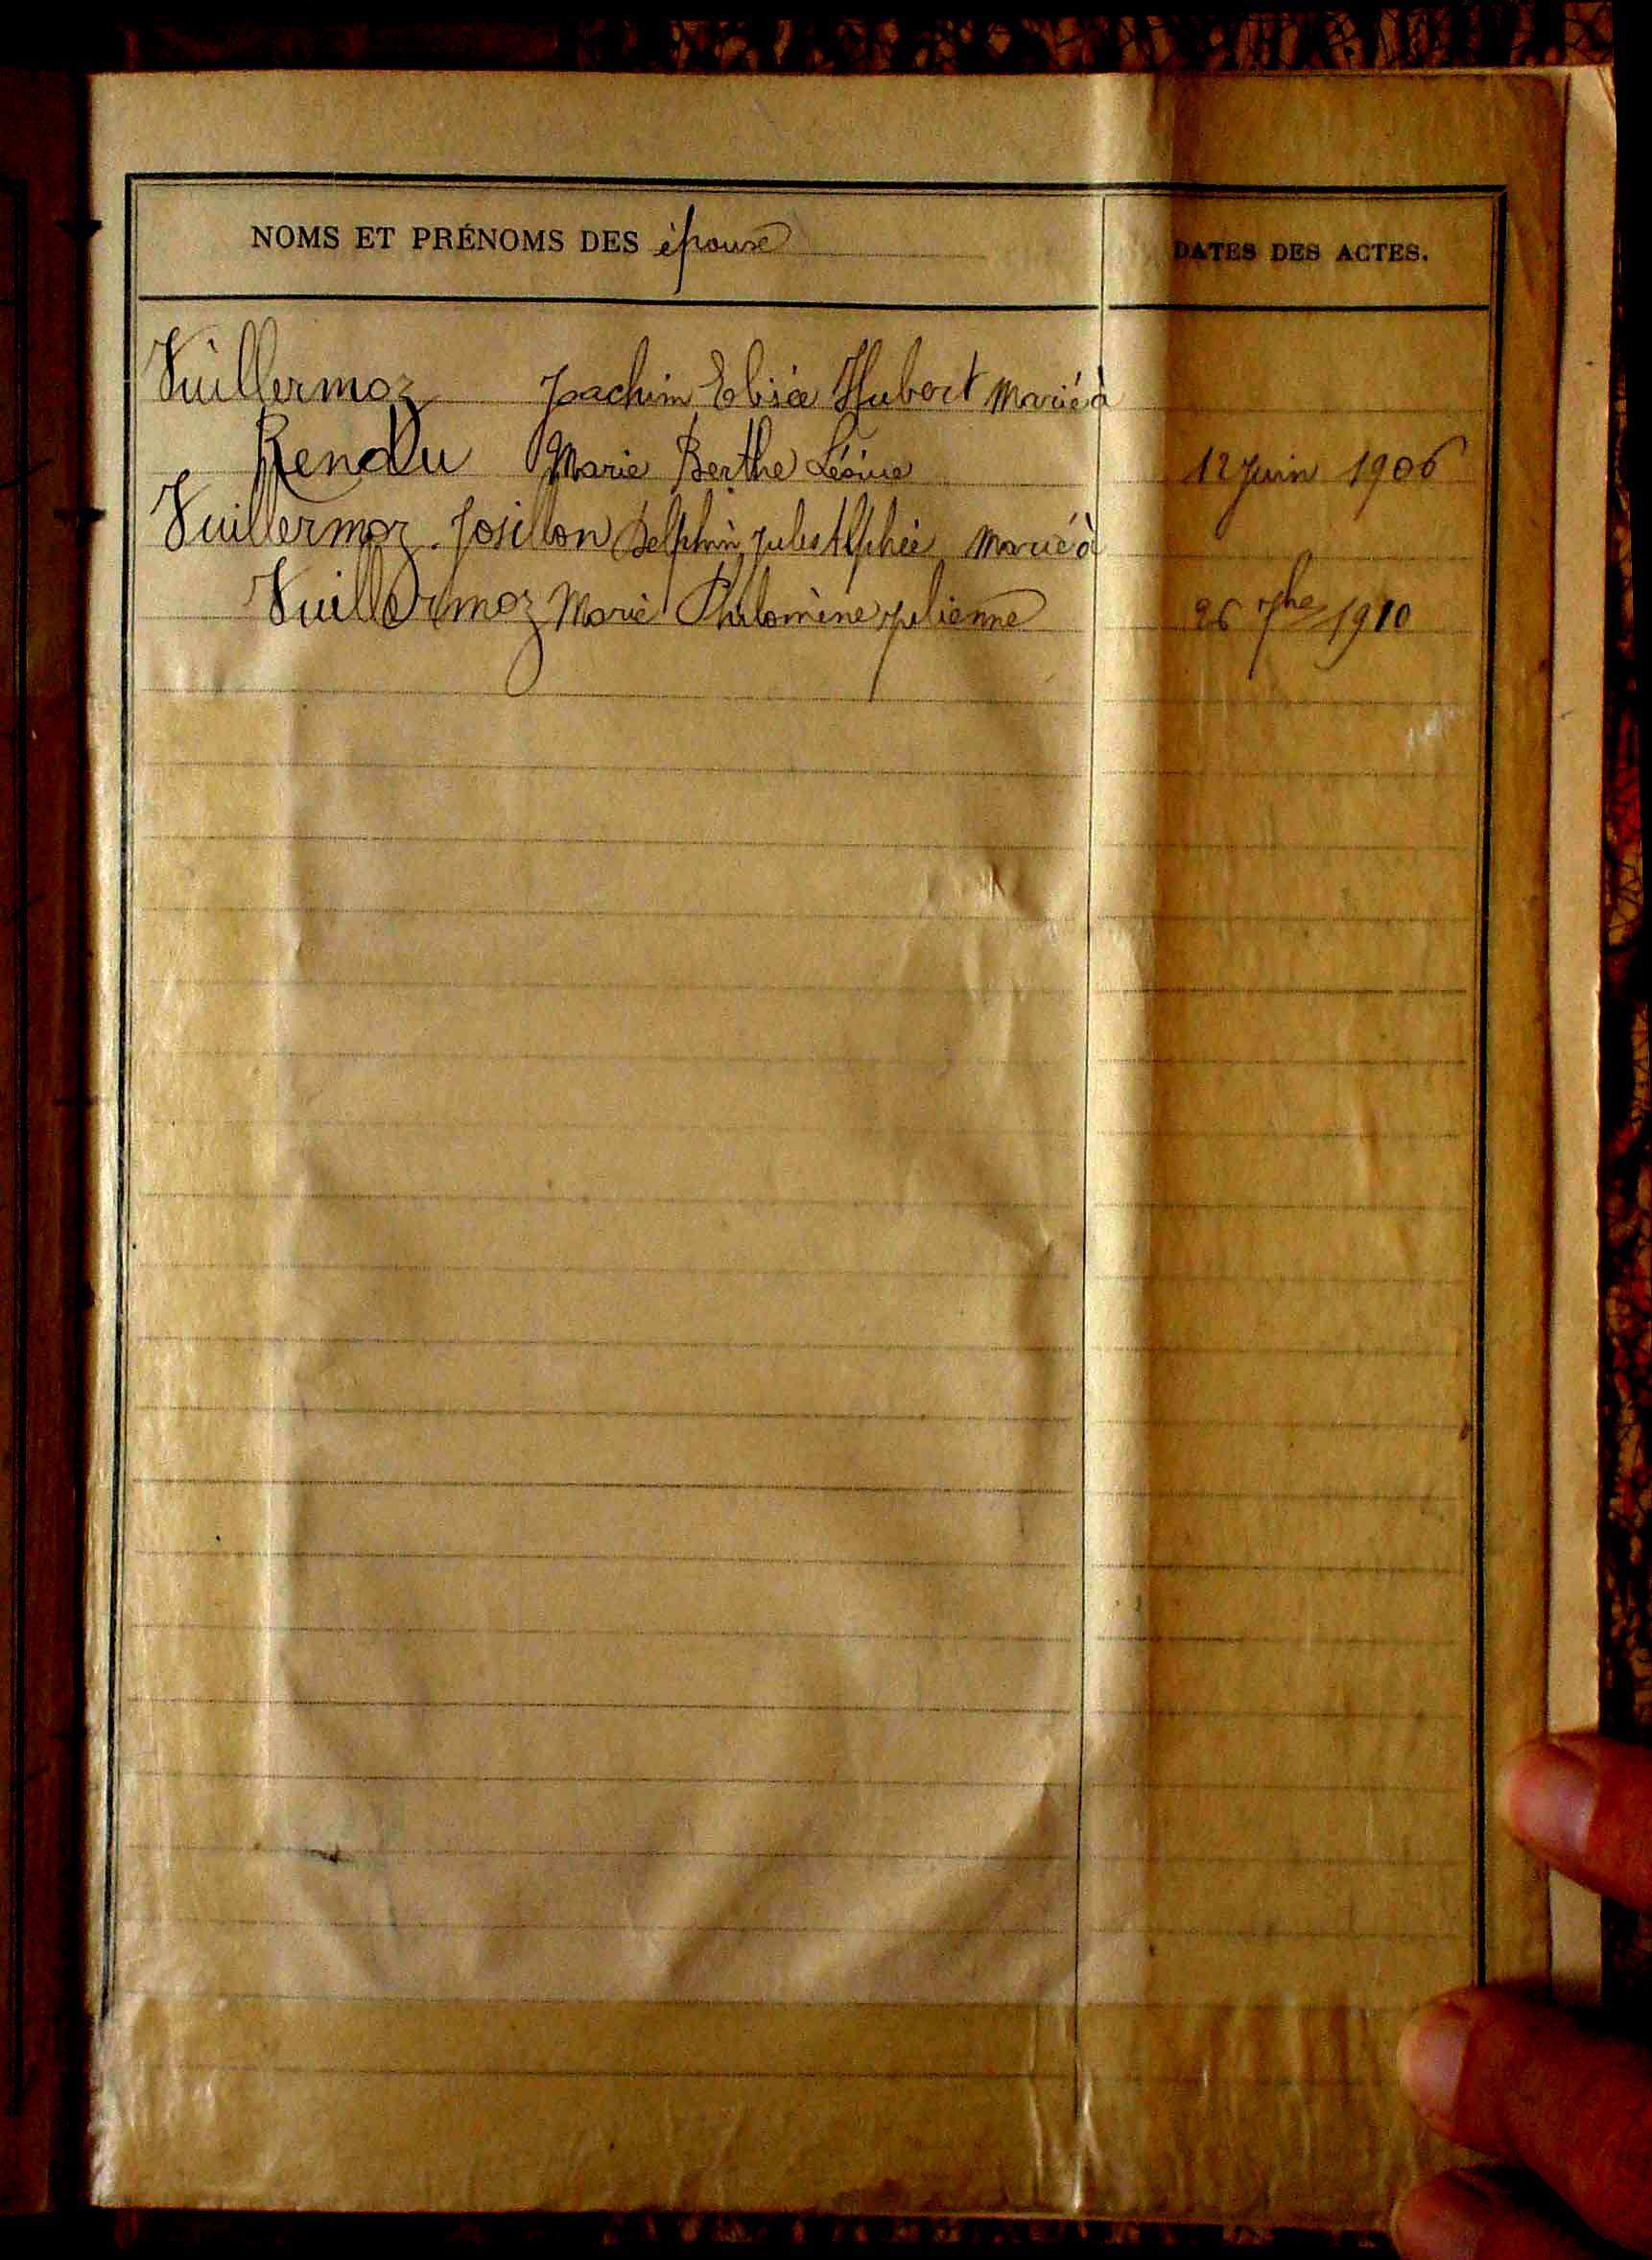 NOMS ET PRÉNOMS DES épouse DATES DES ACTES.
Vuillermoz Joachim Elisée Hubert marié à
Rendu Marie Berthe Lésine 12 Juin 1906
Vuillermoz Josillon Delphin Jules Alphée marié à
Vuillermoz Marie Philomène Julienne 26 7bre 1910